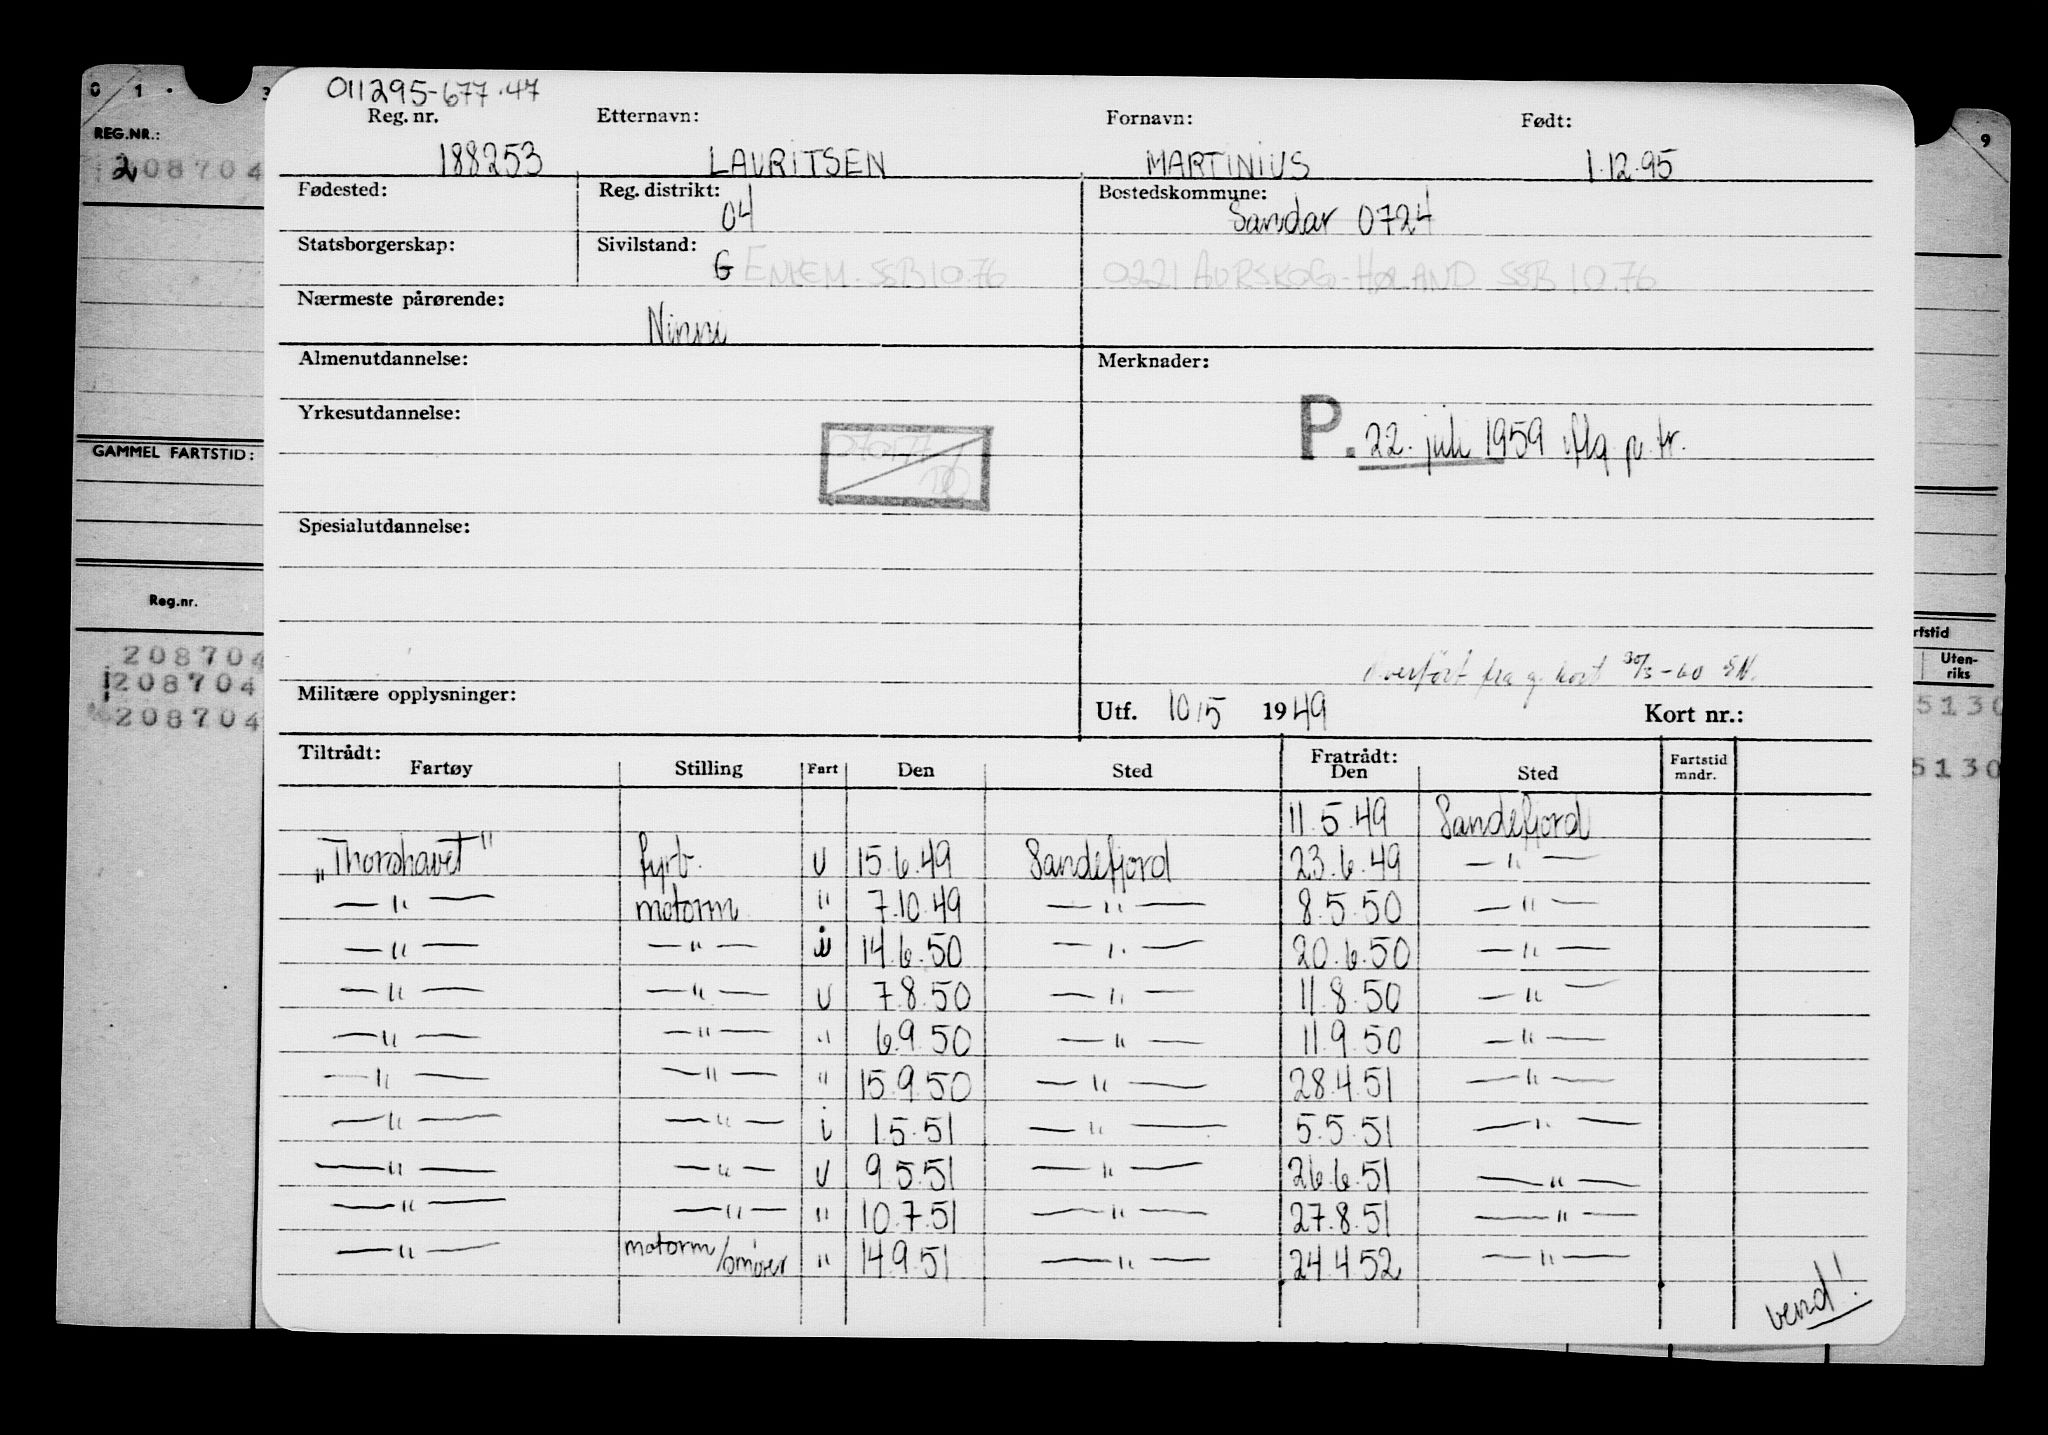 0 1 . 3
9
REG.NR.:
208704
GAMMEL FARTSTID:
Reg.nr.
208704
208704
208704
rtstid
Uten-
riks
5130
5130
011295-677.47
Reg. nr. Etternavn: Fornavn: Født:
188253 LAURITSEN MARTINIUS 1.12.95
Fødested: Reg. distrikt: Bostedskommune:
04 Sandar 0724
Statsborgerskap: Sivilstand:
G ENKEM. SSB 10.76 0221 AURSKOG-HØLAND SSB 10.76
Nærmeste pårørende:
Ninni
Almenutdannelse: Merknader:
Yrkesutdannelse:
P. 22. juli 1959 iflg. p. tr.
070777
Spesialutdannelse:
Overført fra g. kort 30/3-60 EN.
Militære opplysninger:
Utf. 10/5 1949 Kort nr.:
Tiltrådt: Fratrådt:
Fartøy Stilling Fart Den Sted Den Sted Fartstid mndr.
11.5.49 Sandefjord
"Thorshavet" fyrb. U 15.6.49 Sandefjord 23.6.49 —"—
—"— motorm " 7.10.49 —"— 8.5.50 —"—
—"— —"— i 14.6.50 —"— 20.6.50 —"—
—"— —"— U 7.8.50 —"— 11.8.50 —"—
—"— —"— " 6.9.50 —"— 11.9.50 —"—
—"— —"— " 15.9.50 —"— 28.4.51 —"—
—"— —"— i 1.5.51 —"— 5.5.51 —"—
—"— —"— U 9.5.51 —"— 26.6.51 —"—
—"— —"— " 10.7.51 —"— 27.8.51 —"—
—"— motorm/smører " 14.9.51 —"— 24.4.52 —"—
vend!